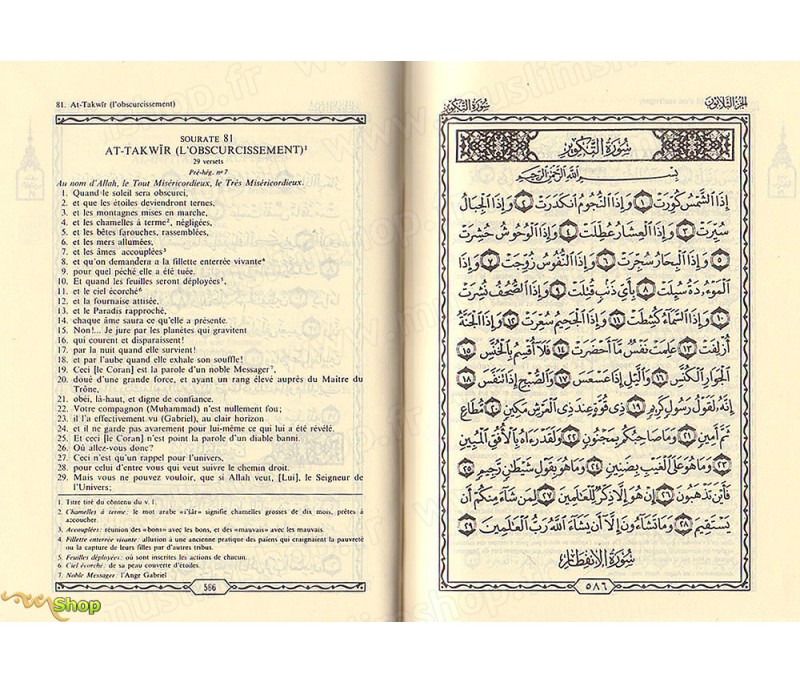 81. At-Takwîr (l'obscurcissement)
SOURATE 81
AT-TAKWÎR (L'OBSCURCISSEMENT)¹
29 versets
Pré-hég. n° 7
Au nom d'Allah, le Tout Miséricordieux, le Très Miséricordieux.
1. Quand le soleil sera obscurci,
2. et que les étoiles deviendront ternes,
3. et les montagnes mises en marche,
4. et les chamelles à terme², négligées,
5. et les bêtes farouches, rassemblées,
6. et les mers allumées,
7. et les âmes accouplées³
8. et qu'on demandera a la fillette enterrée vivante⁴
9. pour quel péché elle a été tuée.
10. Et quand les feuilles seront déployées⁵,
11. et le ciel écorché⁶
12. et la fournaise attisée,
13. et le Paradis rapproché,
14. chaque âme saura ce qu'elle a présenté.
15. Non!... Je jure par les planètes qui gravitent
16. qui courent et disparaissent!
17. par la nuit quand elle survient!
18. et par l'aube quand elle exhale son souffle!
19. Ceci [le Coran] est la parole d'un noble Messager⁷,
20. doué d'une grande force, et ayant un rang élevé auprès du Maitre du
Trône,
21. obéi, là-haut, et digne de confiance.
22. Votre compagnon (Muhammad) n'est nullement fou;
23. il l'a effectivement vu (Gabriel), au clair horizon
24. et il ne garde pas avarement pour lui-même ce qui lui a été révélé.
25. Et ceci [le Coran] n'est point la parole d'un diable banni.
26. Où allez-vous donc?
27. Ceci n'est qu'un rappel pour l'univers,
28. pour celui d'entre vous qui veut suivre le chemin droit.
29. Mais vous ne pouvez vouloir, que si Allah veut, [Lui], le Seigneur de
l'Univers;
1. Titre tiré du contenu du v. 1.
2 Chamelles à terme: le mot arabe «i'šâr» signifie chamelles grosses de dix mois, prêtes à
accoucher.
3 Accouplées: réunion des «bons» avec les bons, et des «mauvais» avec les mauvais.
4 Fillette enterrée vivante: allusion à une ancienne pratique des païens qui craignaient la pauvreté
ou la capture de leurs filles par d'autres tribus.
5 Feuilles déployées: où sont inscrites les actions de chacun.
6 Ciel écorché: de sa peau couverte d'étoiles.
7 Noble Messager: l'Ange Gabriel
586
الجزء الثلاثون
سورة التكوير
سُورَةُ التَّكْوِيرِ
بِسْمِ اللَّهِ الرَّحْمَٰنِ الرَّحِيمِ
إِذَا الشَّمْسُ كُوِّرَتْ ١ وَإِذَا النُّجُومُ انكَدَرَتْ ٢ وَإِذَا الْجِبَالُ
سُيِّرَتْ ٣ وَإِذَا الْعِشَارُ عُطِّلَتْ ٤ وَإِذَا الْوُحُوشُ حُشِرَتْ
٥ وَإِذَا الْبِحَارُ سُجِّرَتْ ٦ وَإِذَا النُّفُوسُ زُوِّجَتْ ٧ وَإِذَا
الْمَوْءُۥدَةُ سُئِلَتْ ٨ بِأَيِّ ذَنبٍ قُتِلَتْ ٩ وَإِذَا الصُّحُفُ نُشِرَتْ
١٠ وَإِذَا السَّمَاءُ كُشِطَتْ ١١ وَإِذَا الْجَحِيمُ سُعِّرَتْ ١٢ وَإِذَا الْجَنَّةُ
أُزْلِفَتْ ١٣ عَلِمَتْ نَفْسٌ مَّا أَحْضَرَتْ ١٤ فَلَا أُقْسِمُ بِالْخُنَّسِ ١٥
الْجَوَارِ الْكُنَّسِ ١٦ وَاللَّيْلِ إِذَا عَسْعَسَ ١٧ وَالصُّبْحِ إِذَا تَنَفَّسَ ١٨
إِنَّهُ لَقَوْلُ رَسُولٍ كَرِيمٍ ١٩ ذِي قُوَّةٍ عِندَ ذِي الْعَرْشِ مَكِينٍ ٢٠ مُّطَاعٍ
ثَمَّ أَمِينٍ ٢١ وَمَا صَاحِبُكُم بِمَجْنُونٍ ٢٢ وَلَقَدْ رَءَاهُ بِالْأُفُقِ الْمُبِينِ
٢٣ وَمَا هُوَ عَلَى الْغَيْبِ بِضَنِينٍ ٢٤ وَمَا هُوَ بِقَوْلِ شَيْطَٰنٍ رَّجِيمٍ ٢٥
فَأَيْنَ تَذْهَبُونَ ٢٦ إِنْ هُوَ إِلَّا ذِكْرٌ لِّلْعَٰلَمِينَ ٢٧ لِمَن شَاءَ مِنكُمْ أَن
يَسْتَقِيمَ ٢٨ وَمَا تَشَاءُونَ إِلَّا أَن يَشَاءَ اللَّهُ رَبُّ الْعَٰلَمِينَ ٢٩
سُورَةُ الْانفِطَارِ
٥٨٦
Shop
www.muslimshop.fr